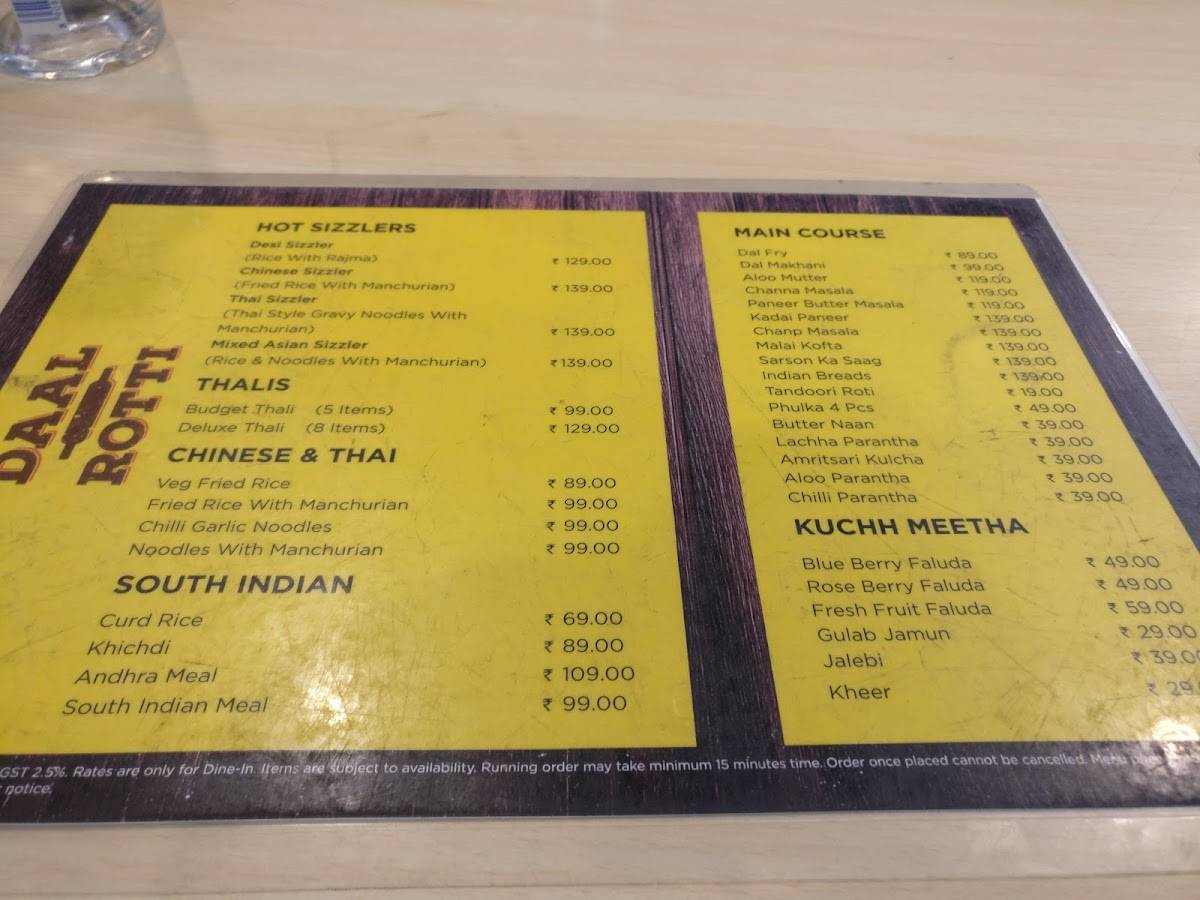 DAAL
ROTTI
HOT SIZZLERS
Desi Sizzler
(Rice With Rajma) ₹ 129.00
Chinese Sizzler
(Fried Rice With Manchurian) ₹ 139.00
Thai Sizzler
(Thai Style Gravy Noodles With
Manchurian) ₹ 139.00
Mixed Asian Sizzler
(Rice & Noodles With Manchurian) ₹ 139.00
THALIS
Budget Thali (5 Items) ₹ 99.00
Deluxe Thali (8 Items) ₹ 129.00
CHINESE & THAI
Veg Fried Rice ₹ 89.00
Fried Rice With Manchurian ₹ 99.00
Chilli Garlic Noodles ₹ 99.00
Noodles With Manchurian ₹ 99.00
SOUTH INDIAN
Curd Rice ₹ 69.00
Khichdi ₹ 89.00
Andhra Meal ₹ 109.00
South Indian Meal ₹ 99.00
MAIN COURSE
Dal Fry ₹ 89.00
Dal Makhani ₹ 99.00
Aloo Mutter ₹ 119.00
Channa Masala ₹ 119.00
Paneer Butter Masala ₹ 119.00
Kadai Paneer ₹ 139.00
Chanp Masala ₹ 139.00
Malai Kofta ₹ 139.00
Sarson Ka Saag ₹ 139.00
Indian Breads ₹ 139.00
Tandoori Roti ₹ 19.00
Phulka 4 Pcs ₹ 49.00
Butter Naan ₹ 39.00
Lachha Parantha ₹ 39.00
Amritsari Kulcha ₹ 39.00
Aloo Parantha ₹ 39.00
Chilli Parantha ₹ 39.00
KUCHH MEETHA
Blue Berry Faluda ₹ 49.00
Rose Berry Faluda ₹ 49.00
Fresh Fruit Faluda ₹ 59.00
Gulab Jamun ₹ 29.00
Jalebi ₹ 39.00
Kheer ₹ 29.
GST 2.5%. Rates are only for Dine-In. Items are subject to availability. Running order may take minimum 15 minutes time. Order once placed cannot be cancelled. Menu
notice.